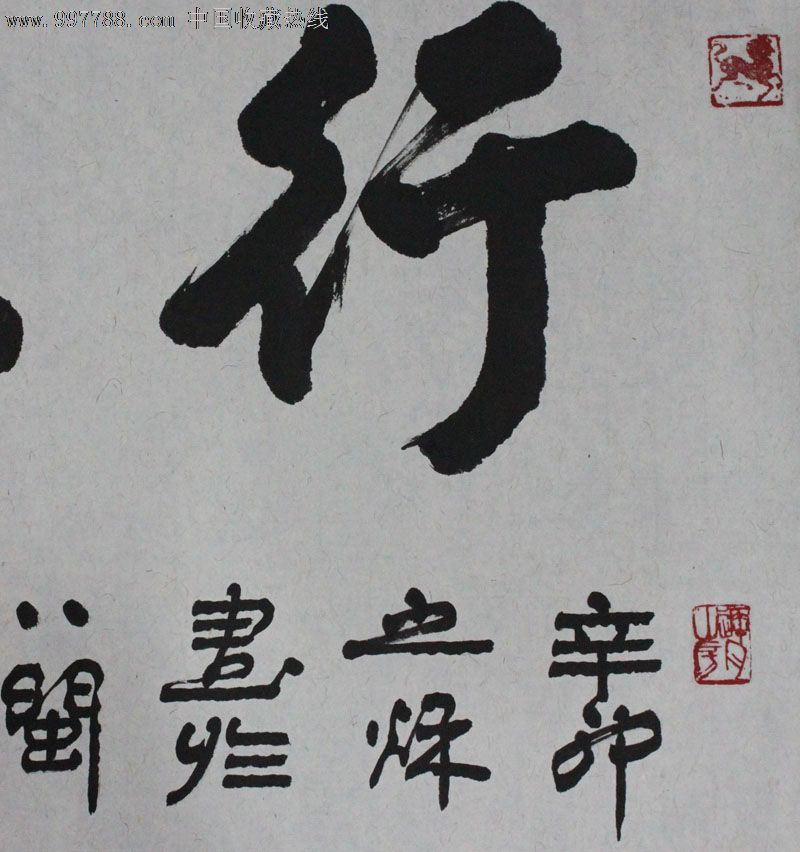 www.997788.com 中国收藏热线
行
辛卯
之秌
書於
八閩